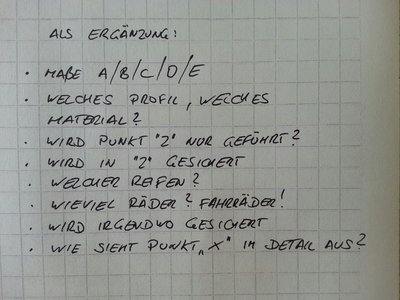 ALS ERGÄNZUNG:
• MAßE A/B/C/D/E
• WELCHES PROFIL, WELCHES
MATERIAL?
• WIRD PUNKT "2" NUR GEFÜHRT?
• WIRD IN "2" GESICHERT
• WELCHER REIFEN?
• WIEVIEL RÄDER? FAHRRÄDER!
• WIRD IRGENDWO GESICHERT
• WIE SIEHT PUNKT „X" IM DETAIL AUS?